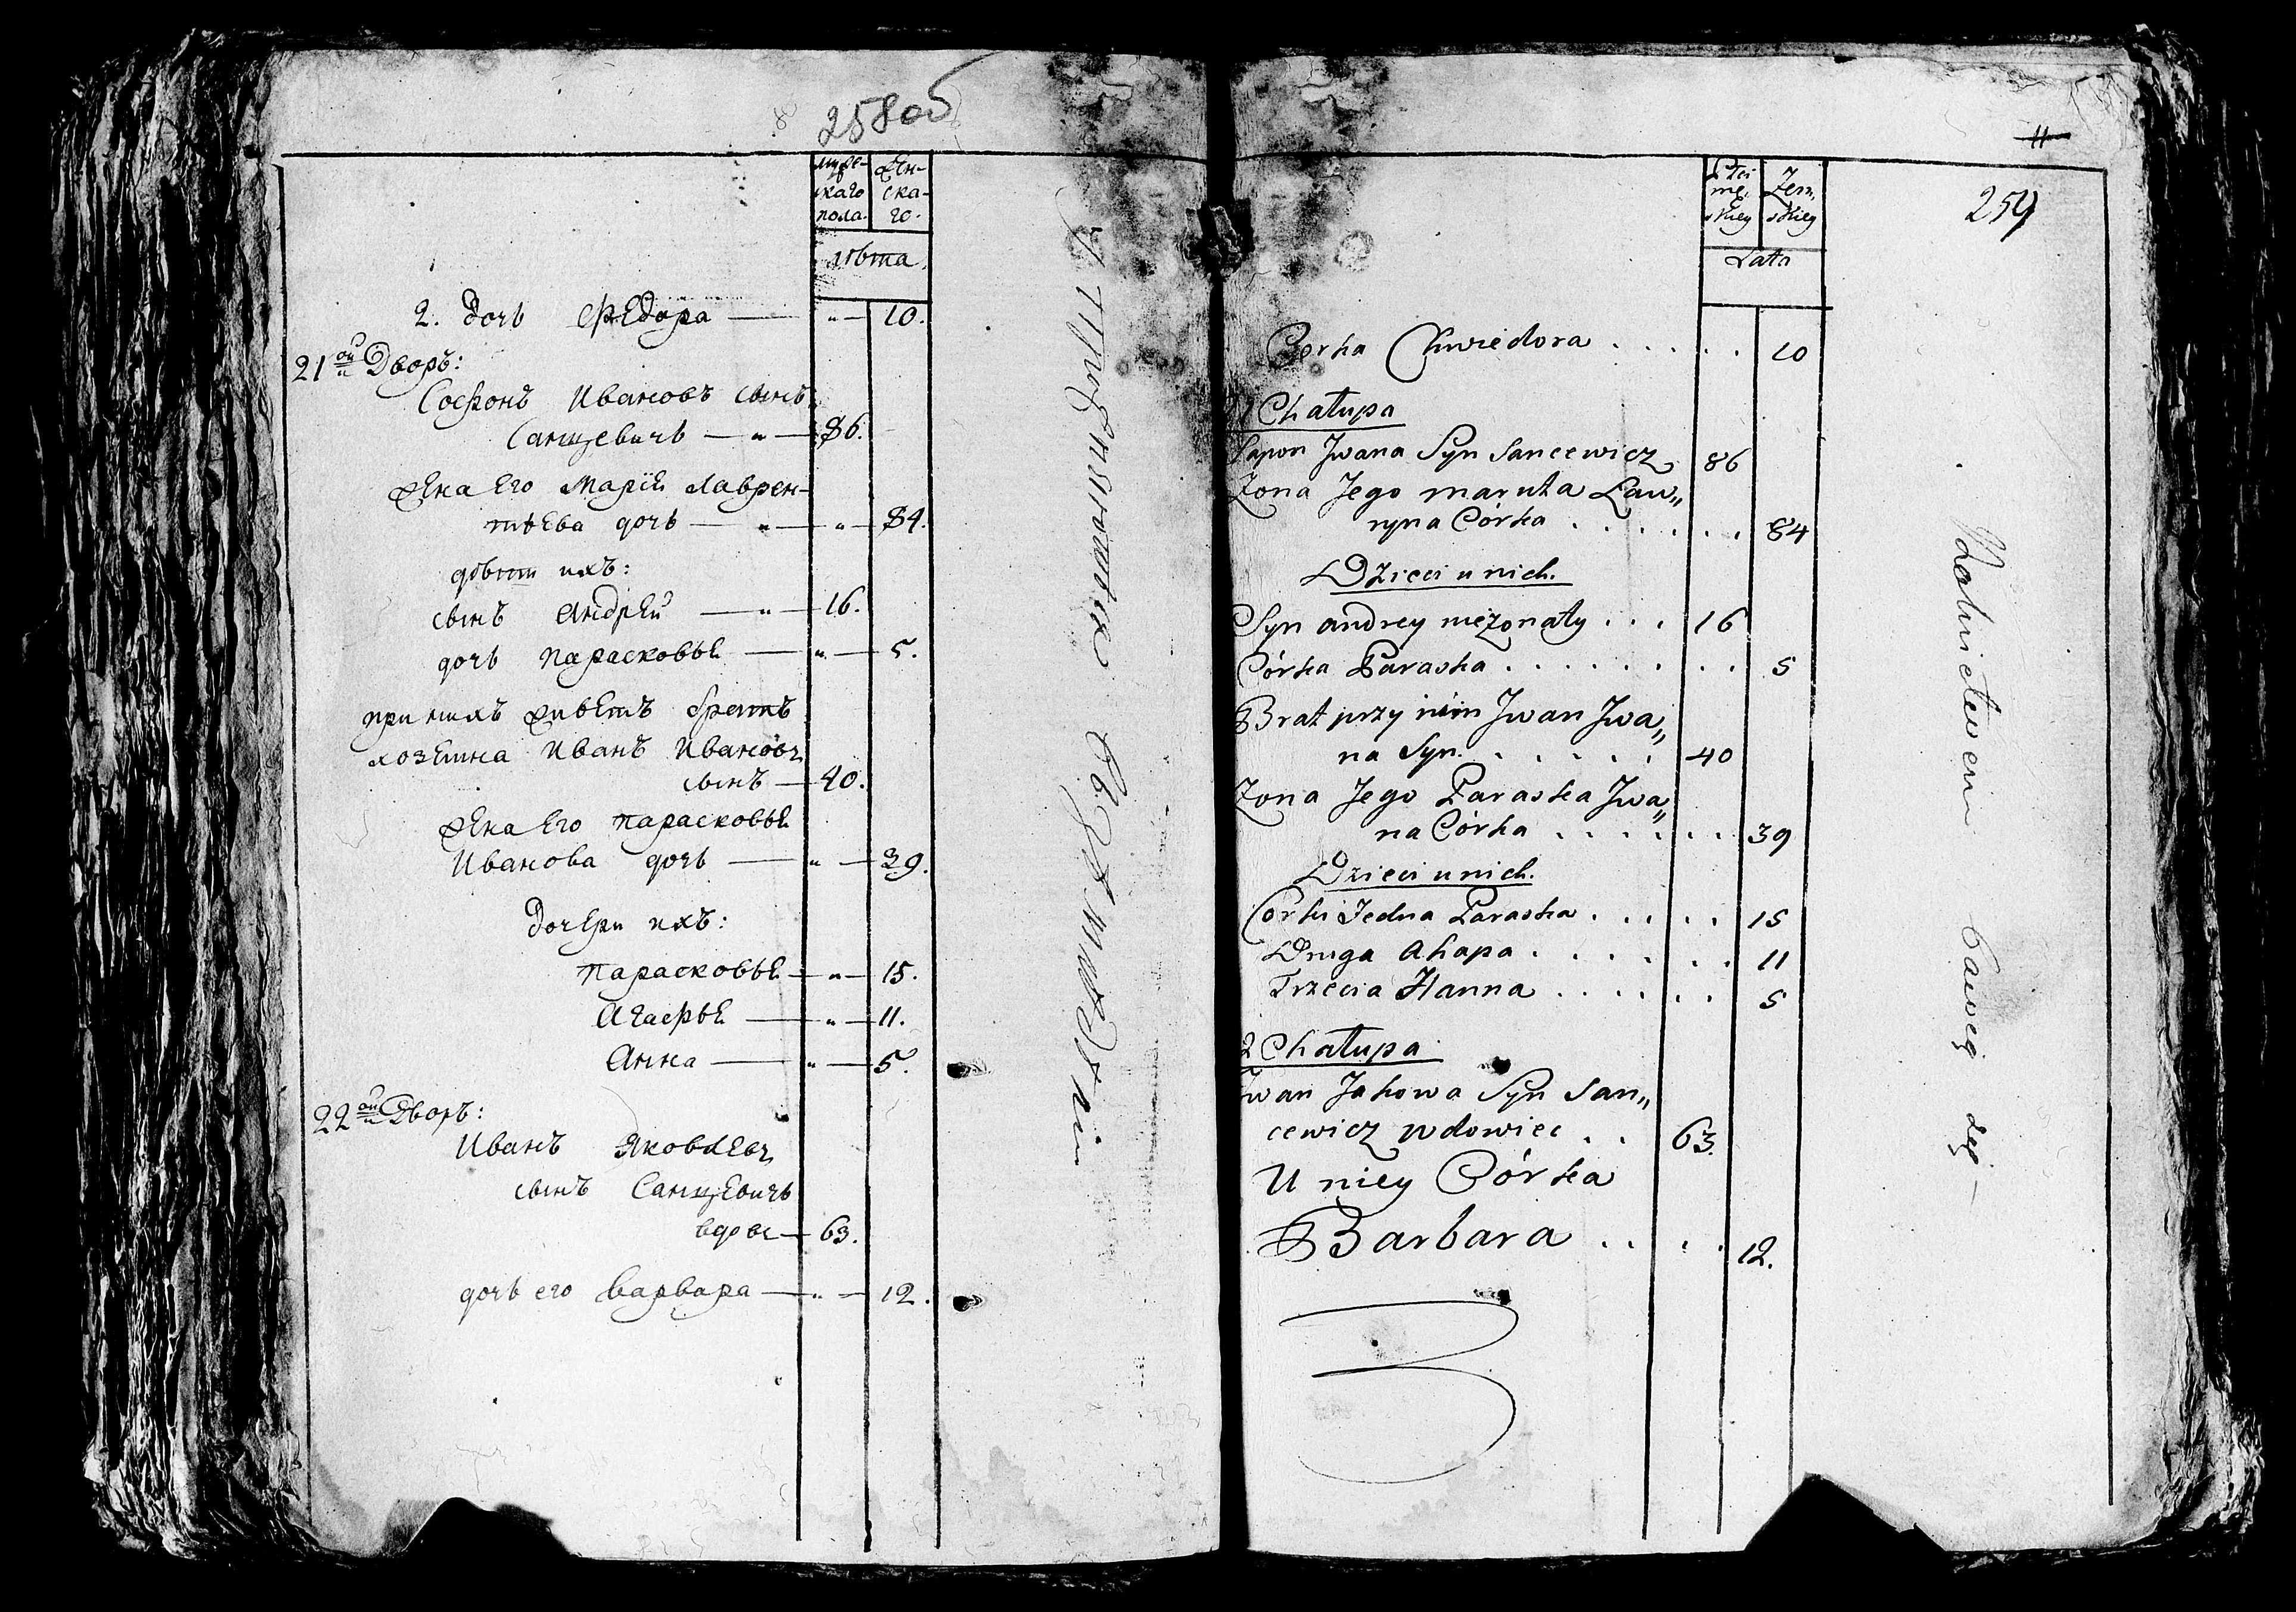 258 об
мужескаго пола.
женскаго.
лѣта.
2. дочь Федора — " — 10.
21ой Дворъ:
Софонъ Ивановъ сынъ
Санцевичъ — " — 86.
жена Его Марія Лаврен-
тьева дочь — " — " — 84.
дѣти ихъ:
сынъ Андрей — " — 16.
дочь Парасковья — " — 5.
при нихъ живетъ братъ
хозяина Иванъ Ивановъ
сынъ — 40.
жена Его Парасковья
Иванова дочь — " — 39.
Дочери ихъ:
Парасковья — " — 15.
Агафья — " — 11.
Анна — " — 5.
22ой Дворъ:
Иванъ Яковлевъ
сынъ Санцевичъ
вдовъ — 63.
дочь его Варвара — " — 12.
11
259
Płci męskiey
Żeńskiey
Lata
Corka Chwiedora . . . . . 10
Chałupa
Sapon Jwana Syn Sancewicz 86
Zona Jego maruta Law„
ryna Córka . . . . . . 84
Dzieci u nich.
Syn andrey nieżonaty . . . 16
Córka Paraska . . . . . . . . 5
Brat przy nim Jwan Jwa„
na Syn. . . . . . 40
Zona Jego Paraska Jwa„
na Córka . . . . . . 39
Dzieci u nich.
Corki Jedna Paraska . . . . . 15
Druga Ahapa . . . . . . 11
Trzecia Hanna . . . . . . 5
2 Chałupa
Jwan Jakowa Syn San„
cewicz wdowiec . . 63.
U niey Córka
Barbara . . . . 12.